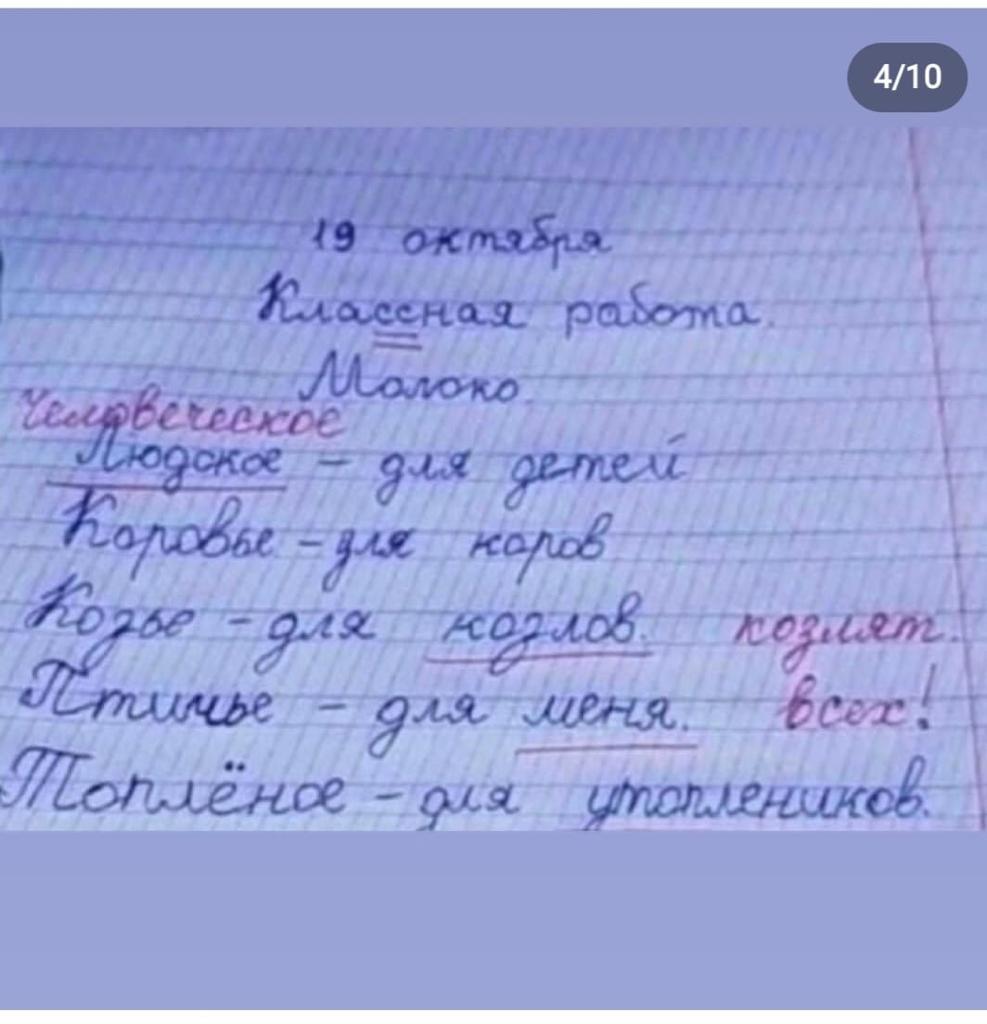 4/10
19 октября
Классная работа.
Молоко.
Человеческое
Людское – для детей
Коровье – для коров
Козье – для козлов. козлят.
Птичье – для меня. всех!
Топлёное – для утоплеников.